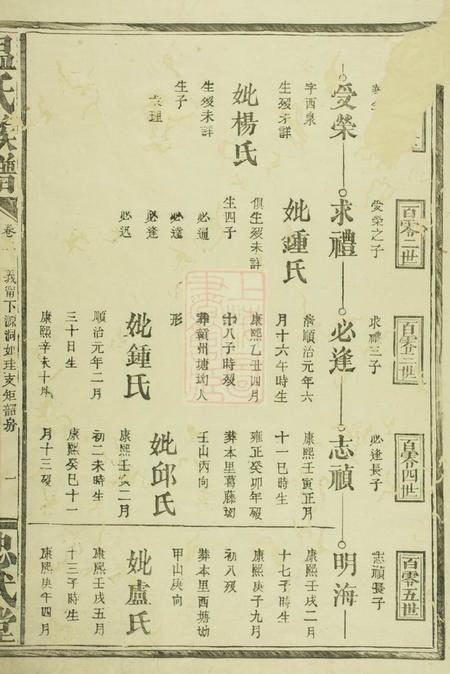 百零二世
百零三世
百零四世
百零五世
受榮
字酉泉
生歿未詳
妣楊氏
生歿未詳
生子
求禮
受榮之子
妣鍾氏
俱生歿未詳
生四子
必通
必達
必逢
必迅
必逢
求禮三子
清順治元年六
月十六午時生
康熙乙丑四月
十八子時歿
葬霸州塘坳人
形
妣鍾氏
順治元年二月
三十日生
康熙辛未十月
志禎
必逢長子
康熙壬寅正月
十一巳時生
雍正癸卯年歿
葬本里葛藤坳
壬山丙向
妣邱氏
康熙壬寅二月
初二未時生
康熙癸巳十一
月十三歿
明海
志禎長子
康熙壬戌二月
十七子時生
康熙庚子九月
初八歿
葬本里西塘坳
甲山庚向
妣盧氏
康熙壬戌五月
十三子時生
康熙庚午四月
溫氏族譜
卷一
義甯下源洞如珪支矩韶房
一
忠武堂